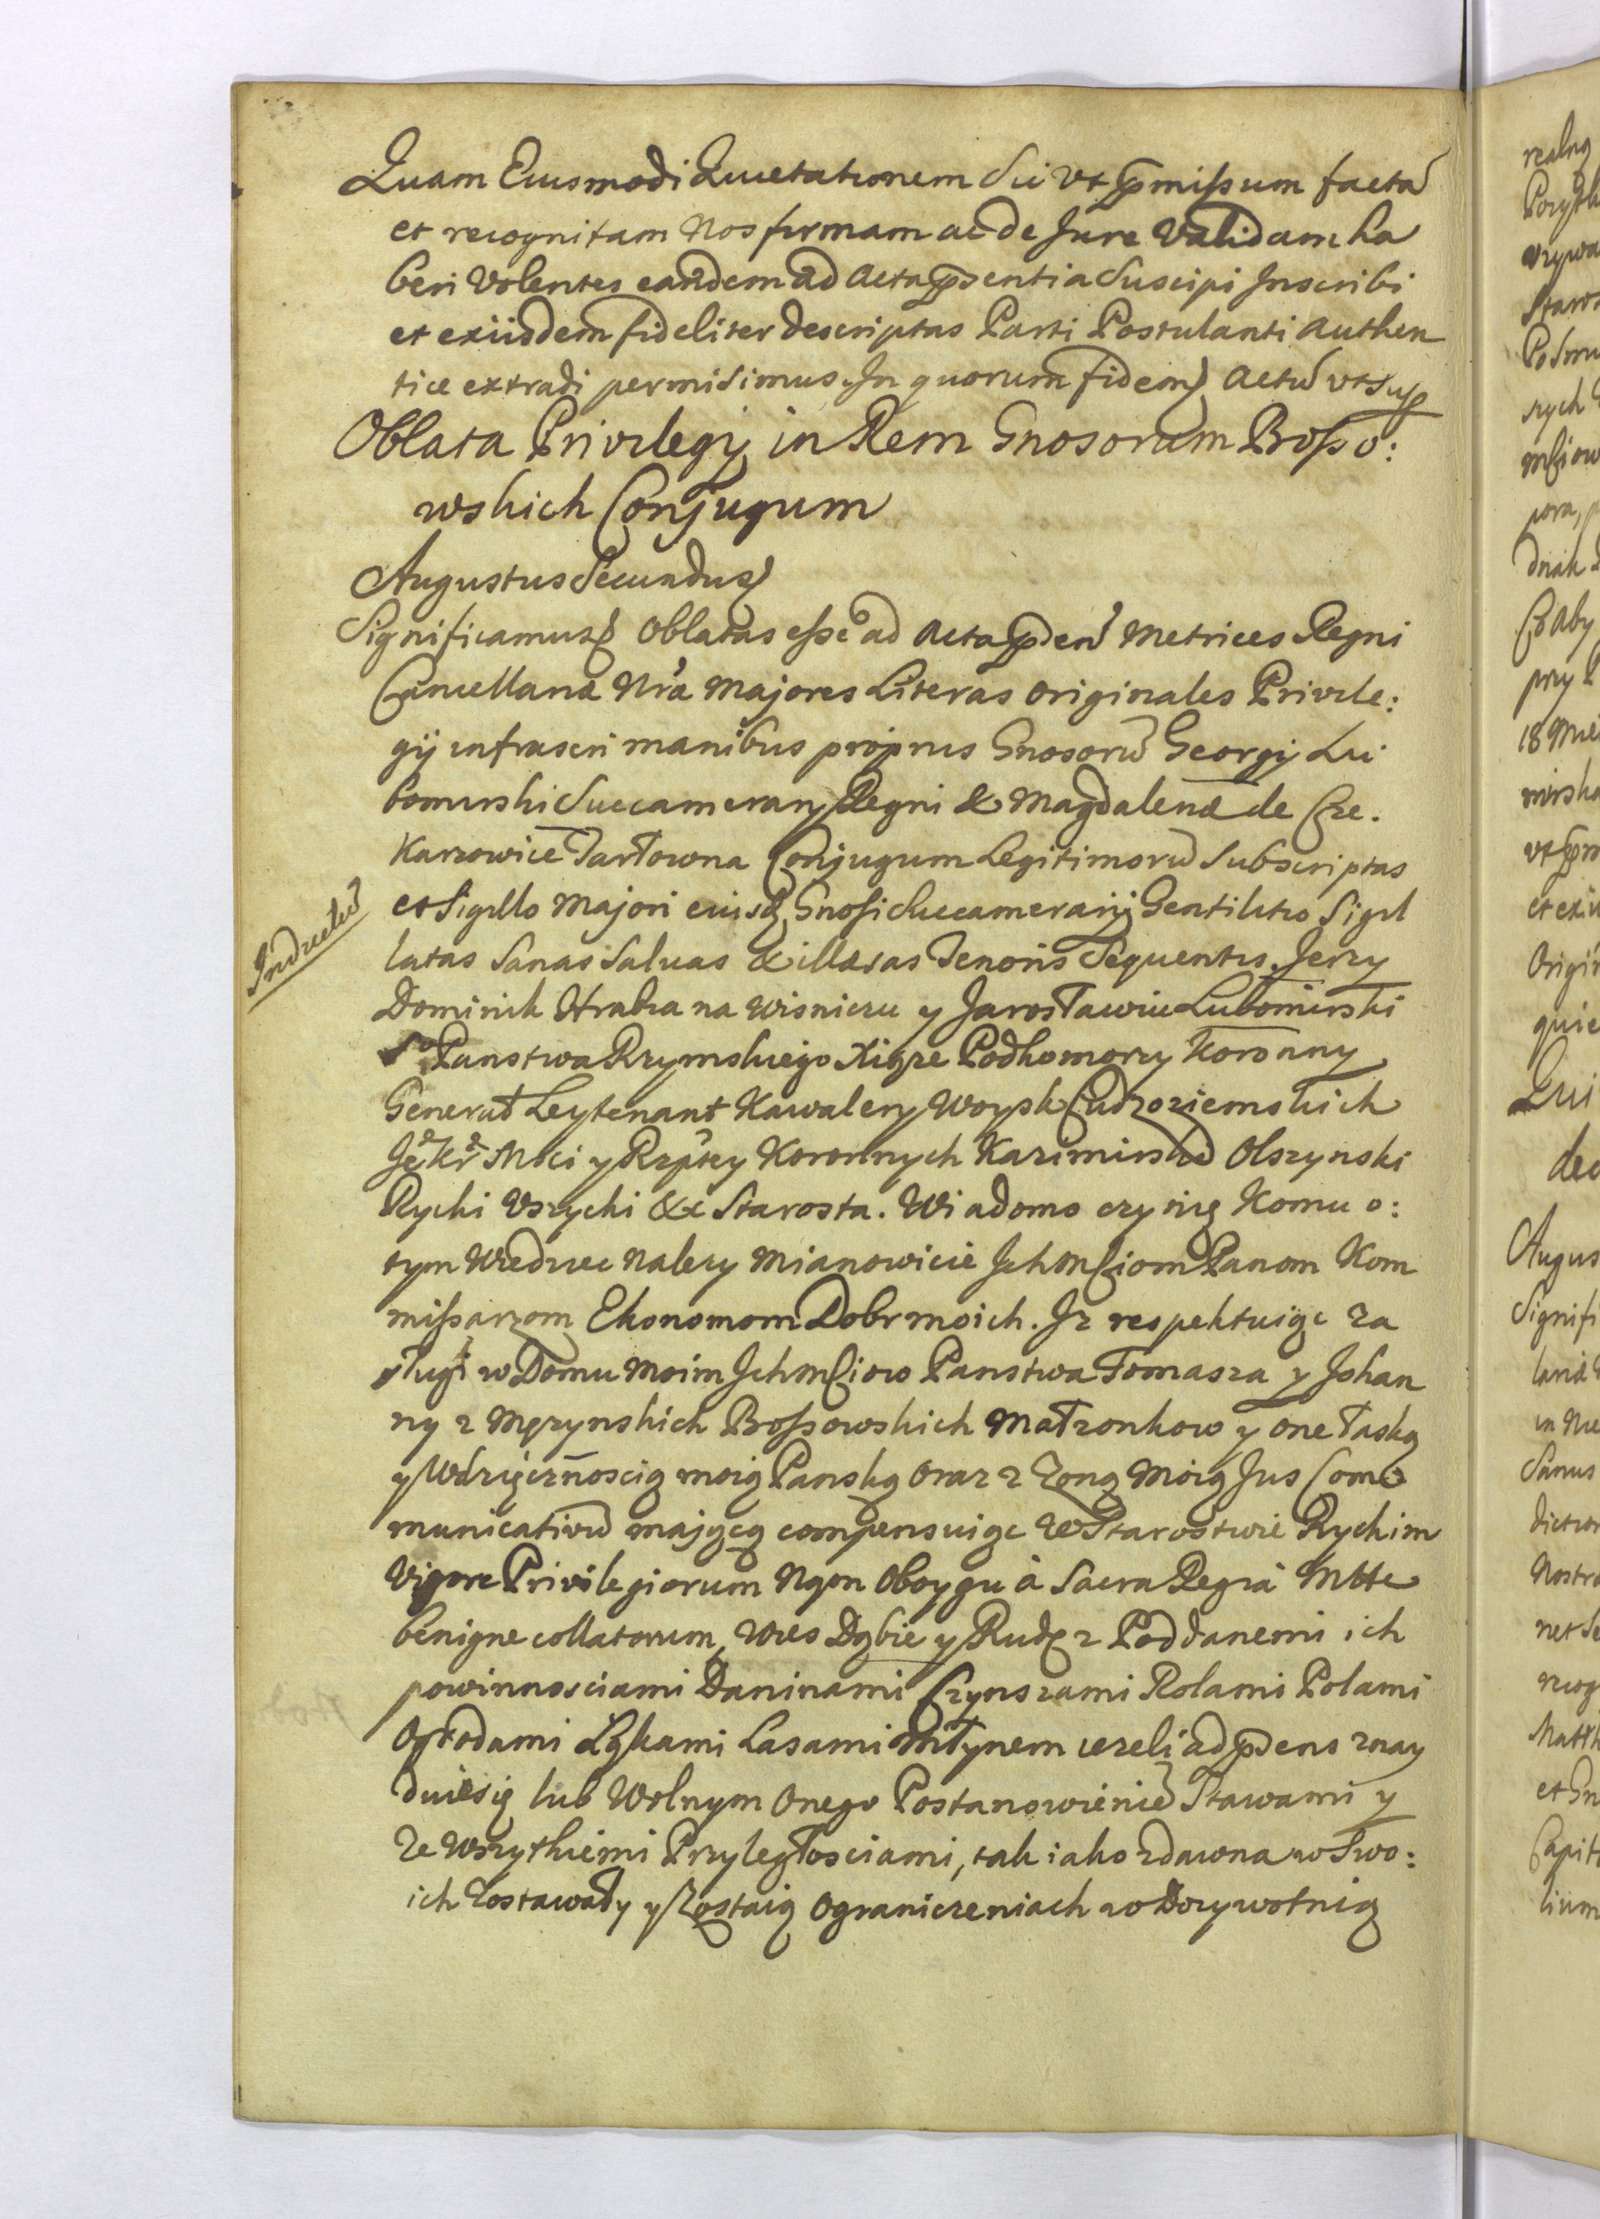 Quam Eiusmodi Quietationem sic ut ꝑmissum facta
et recognitam Nos firmam ac de Jure Validam ha
beri Volentes eandem ad Acta ꝑsentia Suscipi Inscribi
et exiisdem fideliter descriptas Parti Postulanti Authen
tice extradi permisimus. In quorum fidem Actu ut sup
Oblata Privilegij in Rem Gnosorum Bosso:
wskich Conjugum
Augustus Secundus
Significamus Oblatas esse ad Acta ꝑden Metrices Regni
Cancellariæ Nræ Majores Literas Originales Privile:
gij infrascri manibus proprijs Gnosoru Georgij Lu
bomirski Succamerarij Regni & Magdalenæ de Cze.
Karzowice Tarłowna Conjugum Legitimoru Subscriptas
et Sigillo Majori eiusq Gnosi Succamerarij Gentilitio Sigil
Inductu
latas Sanas Salvas & illæsas Tenoris Sequentis. Jerzy
Dominik Hrabia na Wisniczu y Jarosławiu Lubomirski
So Panstwa Rzymskiego Xiąze Podkomorzy Koronny
Generał Leytenant Kawalery Woysk Cudzoziemskich
Je Kr Msci y Rzptey Koronnych Kazimirski Olszynski
Rycki Uszycki &c Starosta. Wiadomo czynię Komu o:
tym Wiedziec nalezy mianowicie JchMciom Panom Kom
missarzom Ekonomom Dobr moich. Iz respektuiąc za
sługi w Domu Moim JchMciow Panstwa Tomasza y Johan
ny z Męzynskich Bossowskich Małzonkow y one łaską
y Wdzięcznoscią moią Panską oraz z Zoną Moią Jus Com
municativu mającą compensuiąc w Starostwie Ryckim
Vigore Privilegiorum Nam Oboygu à Sacra Regia Mtte
benigne collatorum, Wies Dąbie y Rudę z Poddanemi ich
powinnosciami Daninami Czynszami Rolami Polami
Ogrodami Łąkami Lasami Młynem iezeli ad ꝑsens znay
duiesię lub Wolnym onego Postanowienie Stawami y
Ze Wszytkiemi Przyległosciami, tak iako zdawna w Swo:
ich Zostawały y Zostaią Ograniczeniach w Dozywotnią